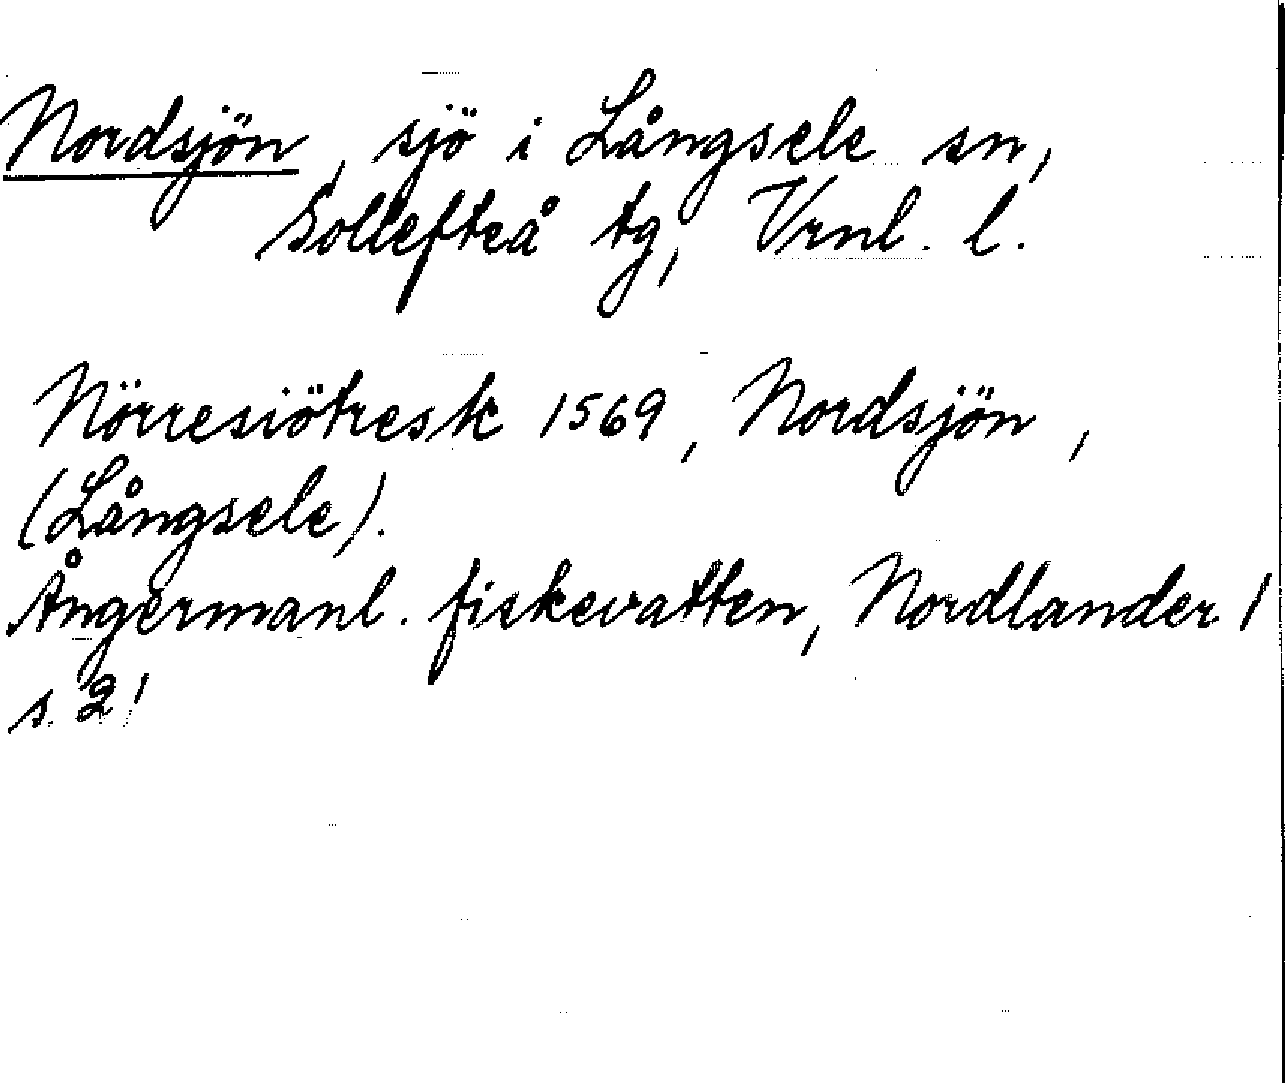 Nordsjön, sjö i Långsele sn,
Sollefteå tg, Vrnl. l.
Nörresiöträsk 1569, Nordsjön,
(Långsele).
Ångermanl. fiskevatten, Nordlander 1
s. 21